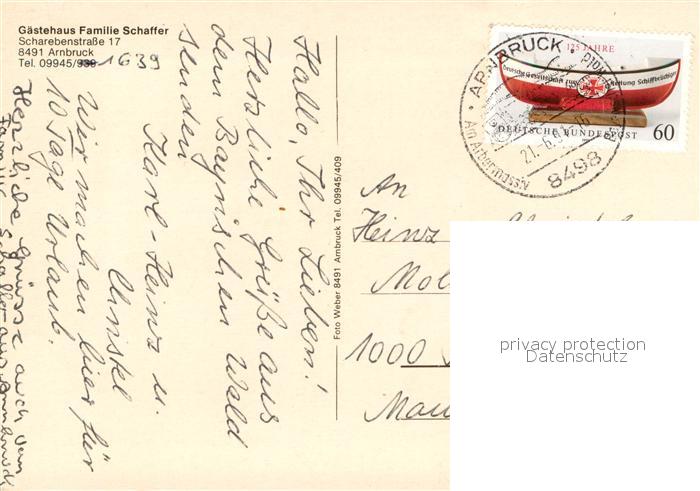 Gästehaus Familie Schaffer
Scharebenstraße 17
8491 Arnbruck
Tel. 09945/939 1639
Hallo, Ihr Lieben!
Herzliche Grüße aus
dem Bayrischen Wald
senden
Karl-Heinz u.
Christel
Wir machen hier für
10 Tage Urlaub.
Herzliche Grüsse auch von
Familie Schaffer aus Arnbruck
Foto Weber 8491 Arnbruck Tel. 09945/409
ARNBRUCK
Am Arbermassiv
21.6.
8498
125 JAHRE
Deutsche Gesellschaft zur Rettung Schiffbrüchiger
DEUTSCHE BUNDESPOST 60
An
Heinz
1000
privacy protection
Datenschutz